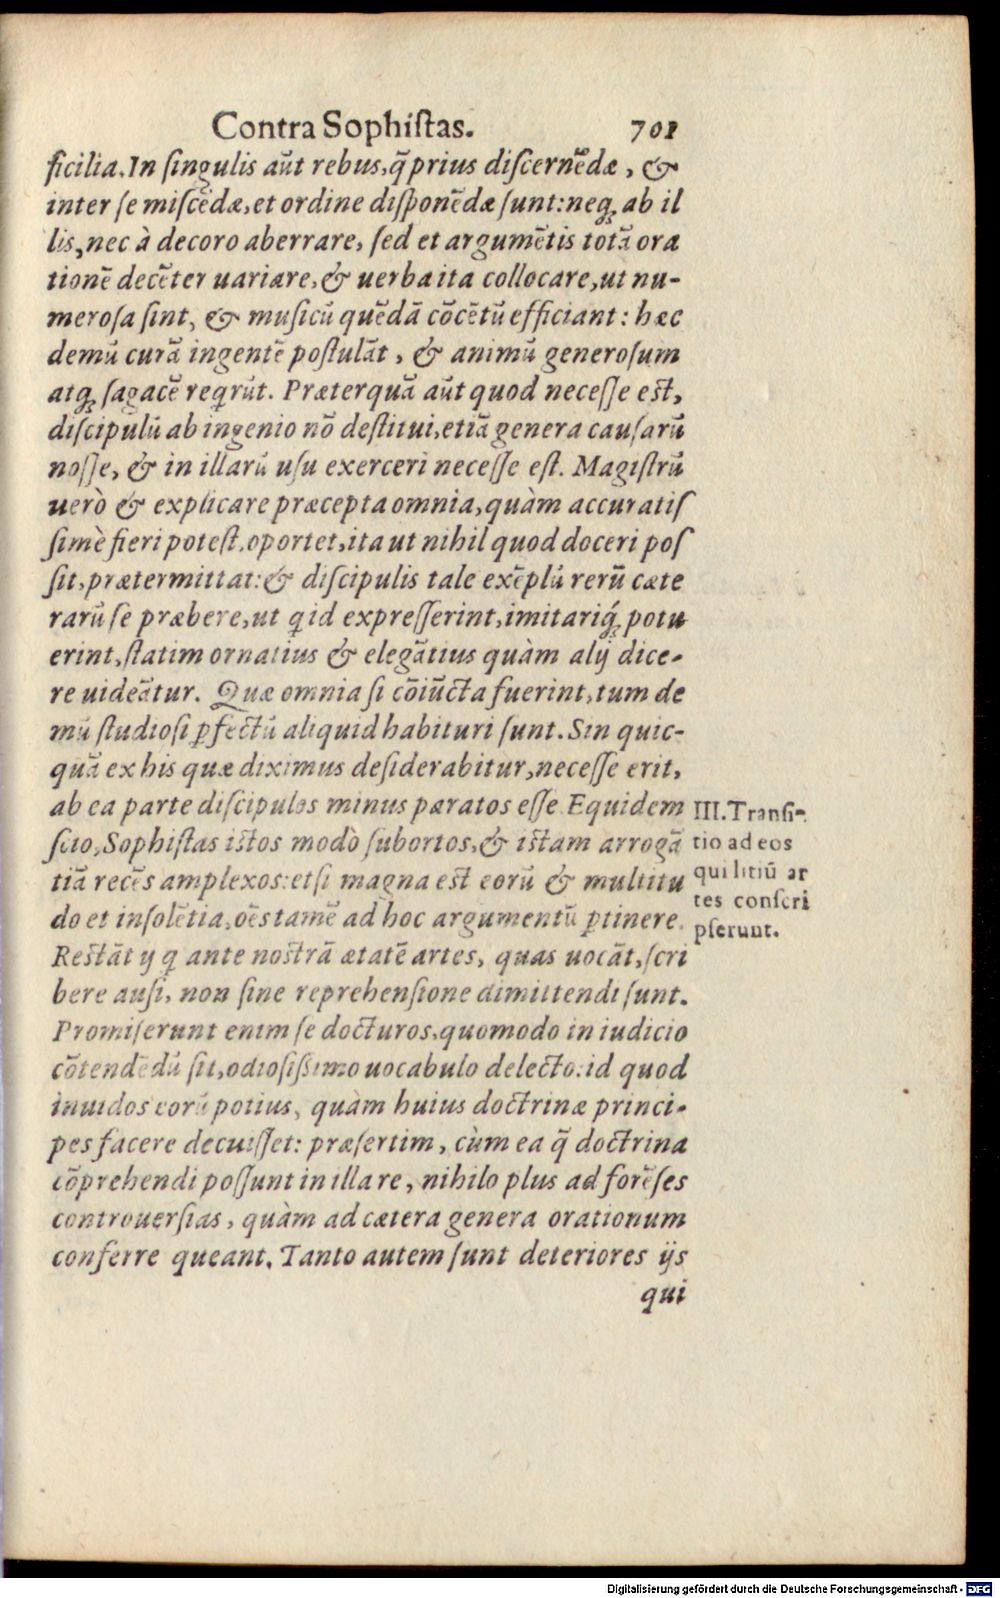 Contra Sophiſtas. 701
ficilia. In ſingulis aũt rebus, q̃ prius diſcernẽdæ, &
inter ſe miſcẽdæ, et ordine diſponẽdæ ſunt: neq; ab il
lis, nec à decoro aberrare, ſed et argumẽtis totã ora
tionẽ decẽter uariare, & uerba ita collocare, ut nu-
meroſa ſint, & muſicũ quẽdã cõcẽtũ efficiant: hæc
demũ curã ingentẽ poſtulãt, & animũ generoſum
atq; ſagacẽ reqrũt. Præterquã aũt quod neceſſe eſt,
diſcipulũ ab ingenio nõ deſtitui, etiã genera cauſarũ
noſſe, & in illarũ uſu exerceri neceſſe eſt. Magiſtrũ
uerò & explicare præcepta omnia, quàm accuratiſ
ſimè fieri poteſt, oportet, ita ut nihil quod doceri poſ
ſit, prætermittat: & diſcipulis tale exẽplũ rerũ cæte
rarũ ſe præbere, ut qid expreſſerint, imitariq́; potu
erint, ſtatim ornatius & elegãtius quàm alij dice-
re uideãtur. Quæ omnia ſi cõiũcta fuerint, tum de
mũ ſtudioſi ꝑfectũ aliquid habituri ſunt. Sin quic-
quã ex his quæ diximus deſiderabitur, neceſſe erit,
ab ea parte diſcipulos minus paratos eſſe. Equidem
ſcio, Sophiſtas iſtos modò ſubortos, & iſtam arrogã
tiã recẽs amplexos: etſi magna eſt eorũ & multitu
do et inſolẽtia, oẽs tamẽ ad hoc argumentũ ꝑtinere.
Reſtãt ij q ante noſtrã ætatẽ artes, quas uocãt, ſcri
bere auſi, non ſine reprehenſione dimittendi ſunt.
Promiſerunt enim ſe docturos, quomodo in iudicio
cõtendẽdũ ſit, odioſiſſimo uocabulo delecto: id quod
inuidos eorũ potius, quàm huius doctrinæ princi-
pes facere decuiſſet: præſertim, cùm ea q̃ doctrina
cõprehendi poſſunt in illa re, nihilo plus ad forẽſes
controuerſias, quàm ad cætera genera orationum
conferre queant. Tanto autem ſunt deteriores ijs
qui
III. Tranſi-
tio ad eos
qui litiũ ar
tes conſcri
pſerunt.
Digitalisierung gefördert durch die Deutsche Forschungsgemeinschaft - DFG